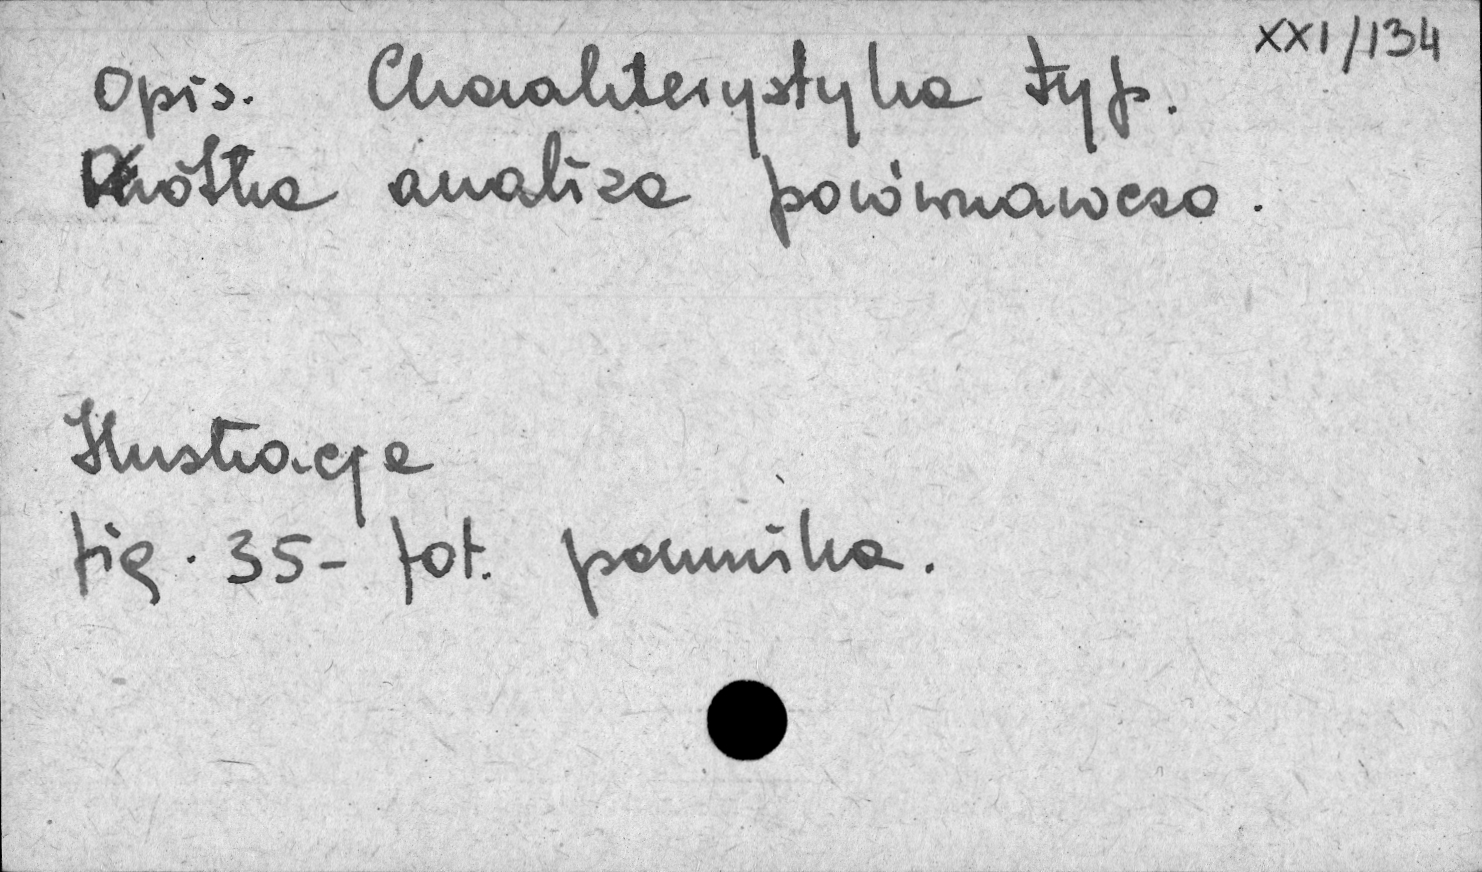 XXI/134
Opis. Charakterystyka typ.
Krótka analiza porównawcza.
Ilustracje
fig. 35- fot. pomnika.